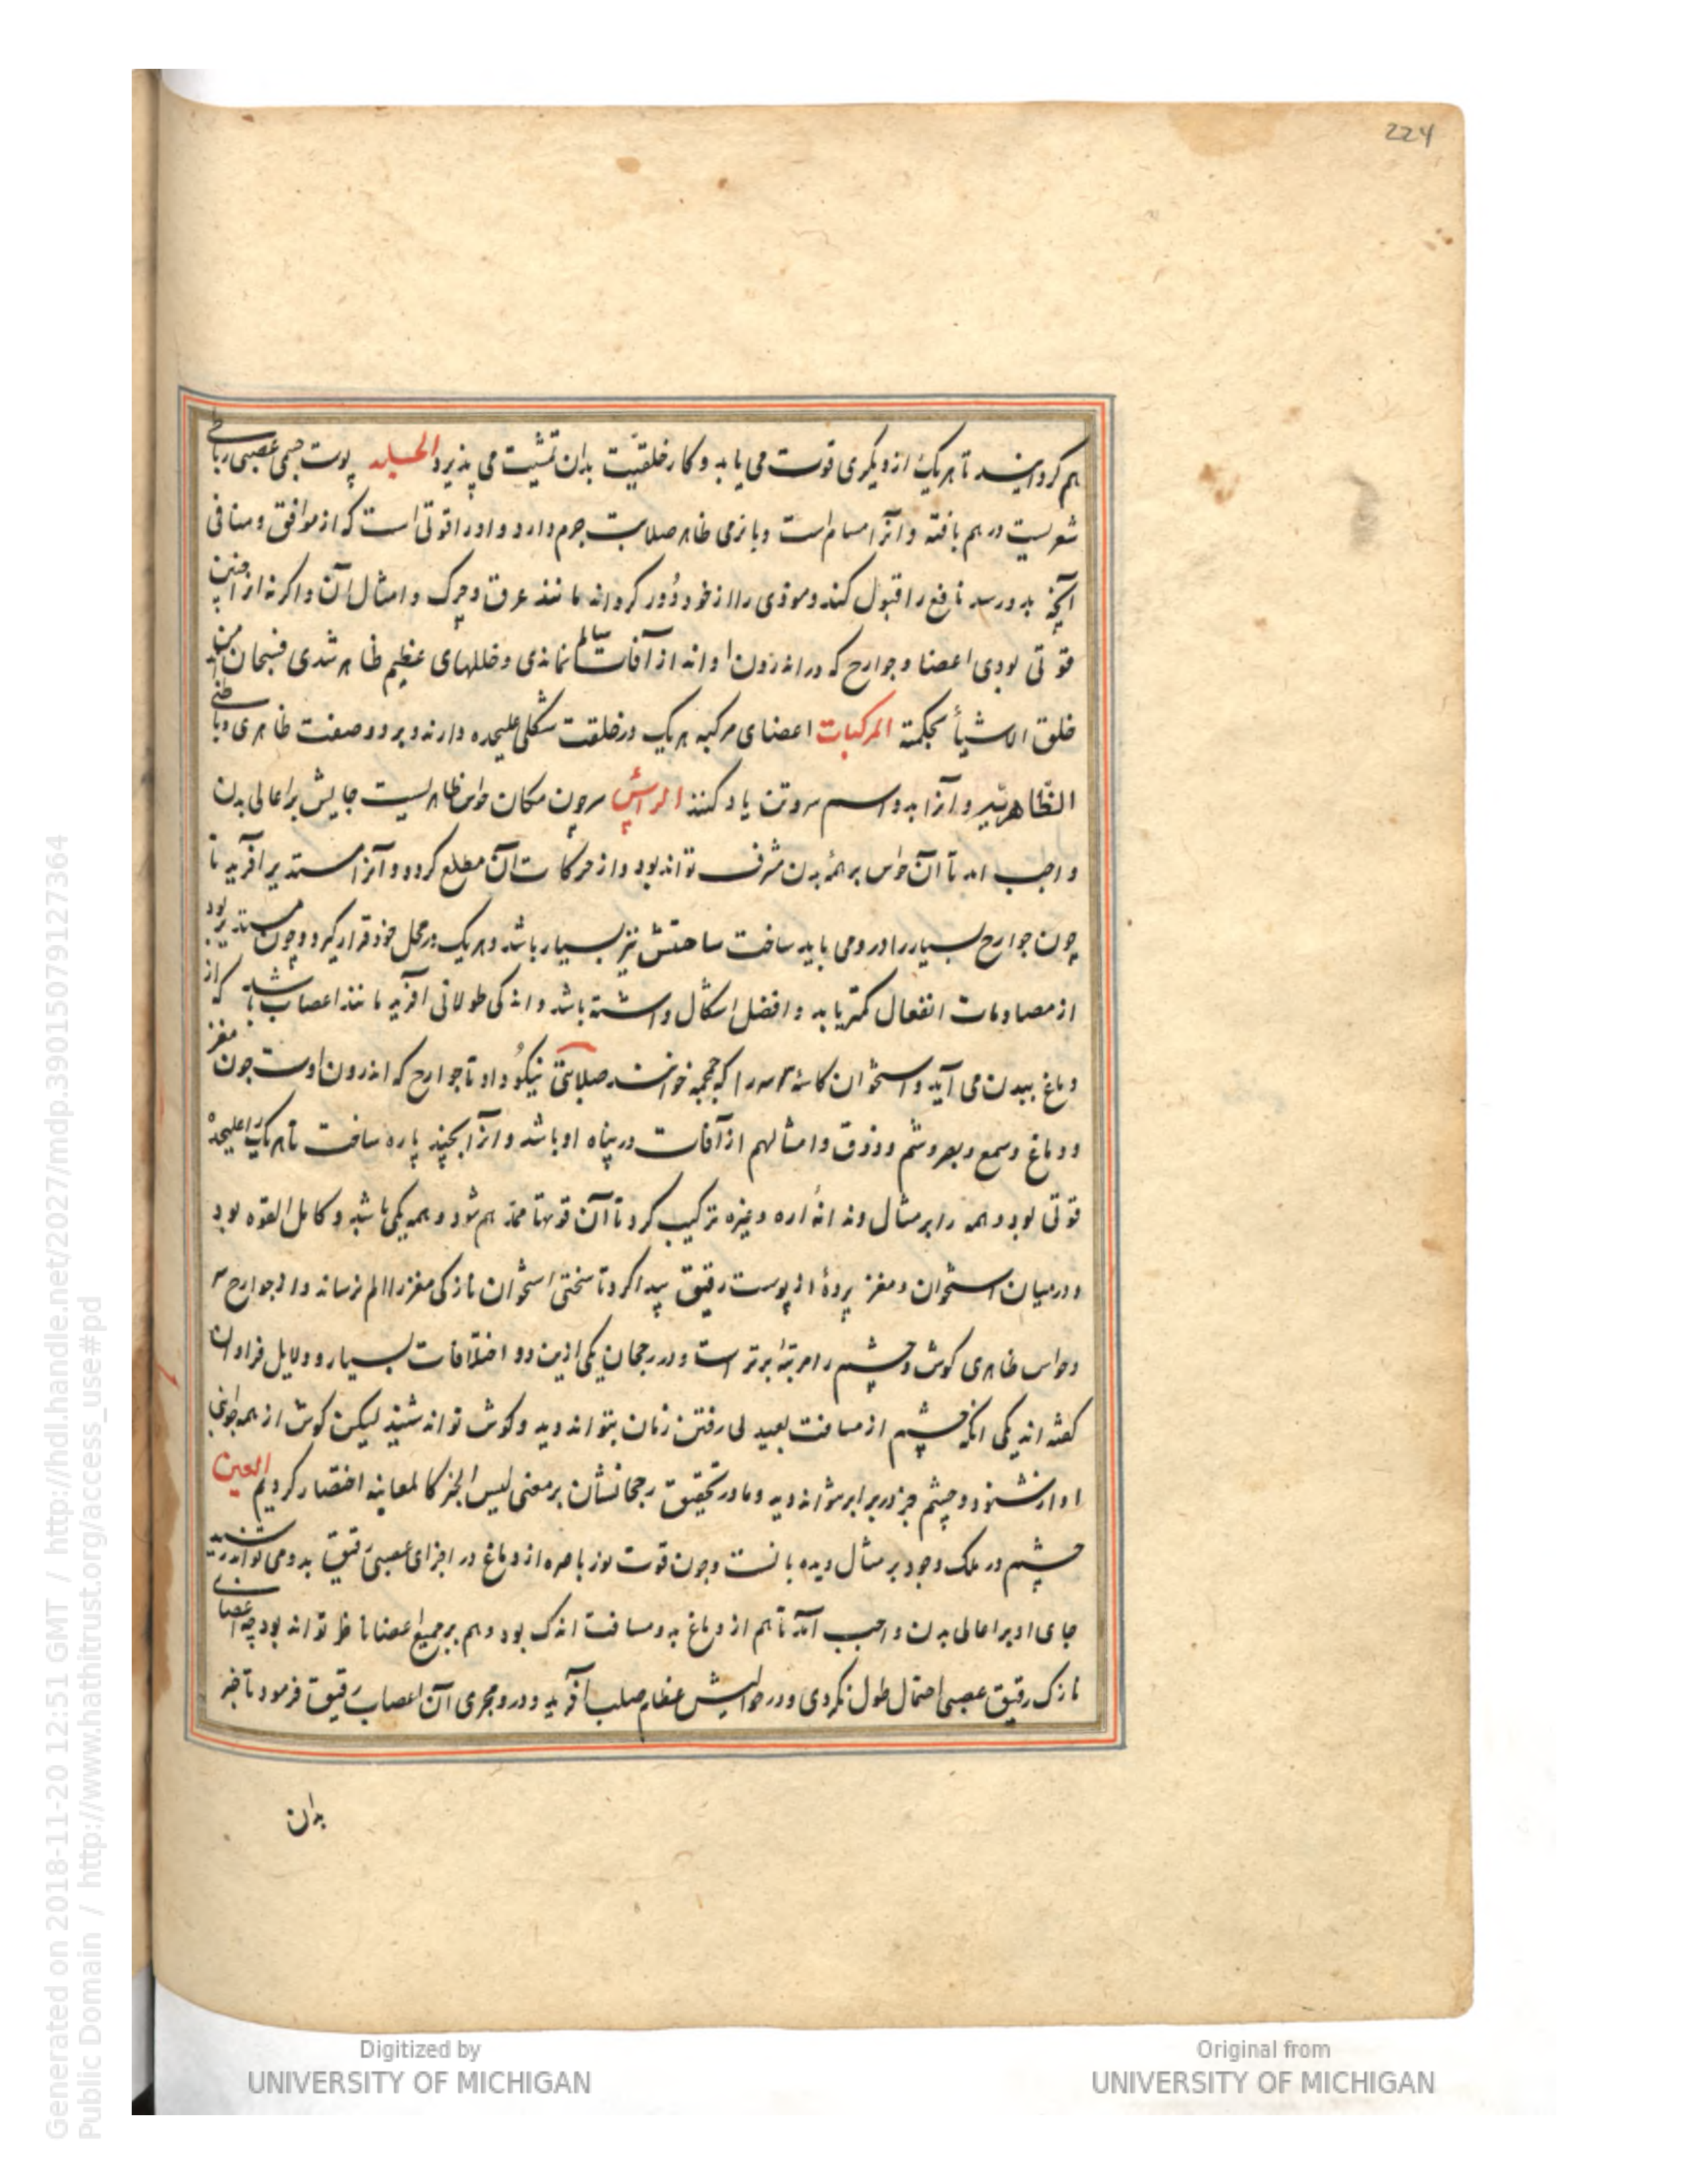 224
هم کردانند تا هر یک از دیکری قوت می یابد و کار خلقیت بدان تمشیت می پذیرد الجلد پوست جسمی عصبی رباطی
شعریست در هم بافته و آنرا مسام است و با نرمی ظاهر صلابت جرم دارد و او را قوتی است که از موافق و منافی
آنچه بدو رسد نافع را قبول کند و موذی را از خود دور کرداند مانند عرق و چرک و امثال آن و اکر نه او را چنین
قوتی بودی اعضا و جوارح که در اندرون اواند از آفات سالم نماندی و خللهای عظیم ظاهر شدی فسبحان من
خلق الاشیأ بحکمته المرکبات اعضای مرکبه هر یک در خلقت شکلی علیحده دارند و بر دو صفت ظاهری و باطنی
الظاهریه و آنرا بدو اسم سر و تن یاد کنند الرأس سر چون مکان حواس ظاهریست جایش بر اعالی بدن
واجب امد تا آن حواس بر همۀ بدن مشرف تواند بود و از حرکات آن مطلع کردد و آنرا مستدیر آفرید تا
چون جوارح بسیار را درو می باید ساخت ساحتش نیز بسیار باشد و هر یک در محل خود قرار کیرد و چون مستدیر بود
از مصادمات انفعال کمتر یابد و افضل اشکال داشته باشد و اندکی طولانی افرید مانند اعصاب باشد که از
دماغ ببدن می آید و استخوان کاسۀ سر را که جمجمه خوانند صلابتی نیکو داد تا جوارح که اندرون اوست چون مغز
و دماغ و سمع و بصر و شم و ذوق و امثالهم از آفات در پناه او باشد و آنرا بچند پاره ساخت تا هر یک را علیحده
قوتی بود و همه را بر مثال دندانۀ اره و غیره ترکیب کرد تا آن قوتها ممد هم شود و همه یکی باشد و کامل القوه بود
و در میان استخوان و مغز پردۀ از پوست رقیق پیدا کرد تا سختی استخوان نازکی مغز را الم نرساند و از جوارح سر
و حواس ظاهری کوش و چشم را مرتبۀ برتر است و در رجحان یکی ازین دو اختلافات بسیار و دلایل فراوان
کفته اند یکی انکه چشم از مسافت بعید بی رفتن زمان بتواند دید و کوش نتواند شنید لیکن کوش از همه جوانب
اواز شنود و چشم جز در برابر نتواند دید و ما در تحقیق رجحانشان بر معنی لیس الخبر کالمعاینه اختصار کردیم العین
چشم در ملک وجود بر مثال دیده بانست و چون قوت نور باصره از دماغ در اجزای عصبی رقیق بدو می تواند رسید
جای او بر اعالی بدن واجب آمد تا هم از دماغ بدو مسافت اندک بود و هم بر جمیع اعضا ناظر تواند بود چه اعضای
نازک رقیق عصبی احتمال طول نکردی و در حوالیش عظام صلب آفرید و درو مجری آن اعصاب رقیق فرمود تا خبر
بدان
Generated on 2018-11-20 12:51 GMT / http://hdl.handle.net/2027/mdp.39015079127364
Public Domain / http://www.hathitrust.org/access_use#pd
Digitized by
UNIVERSITY OF MICHIGAN
Original from
UNIVERSITY OF MICHIGAN